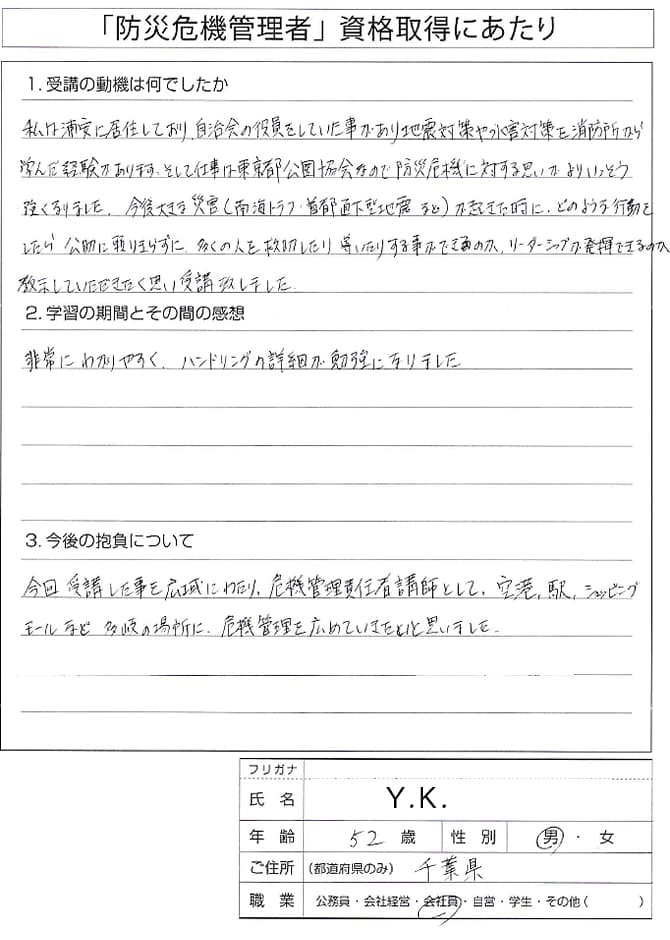 「防災危機管理者」資格取得にあたり
1. 受講の動機は何でしたか
私は浦安に居住しており、自治会の役員をしていた事があり地震対策や水害対策を消防所から
学んだ経験があります。そして仕事は東京都公園協会なので防災危機に対する思いがよりいっそう
強くなりました。今後大きな災害(南海トラフ・首都直下型地震など)が起きた時に、どのような行動を
したら公助に頼りきらずに、多くの人を救助したり導いたりする事ができるのか、リーダーシップが発揮できるのか
教示していただきたく思い受講致しました。
2. 学習の期間とその間の感想
非常にわかりやすく、ハンドリングの詳細が勉強になりました
3. 今後の抱負について
今回受講した事を広域にわたり、危機管理責任者講師として、空港、駅、ショッピング
モールなど多岐の場所に、危機管理を広めていきたいと思いました。
フリガナ
氏名 Y.K.
年齢 52歳 性別 男・女
ご住所 (都道府県のみ) 千葉県
職業 公務員・会社経営・会社員・自営・学生・その他( )